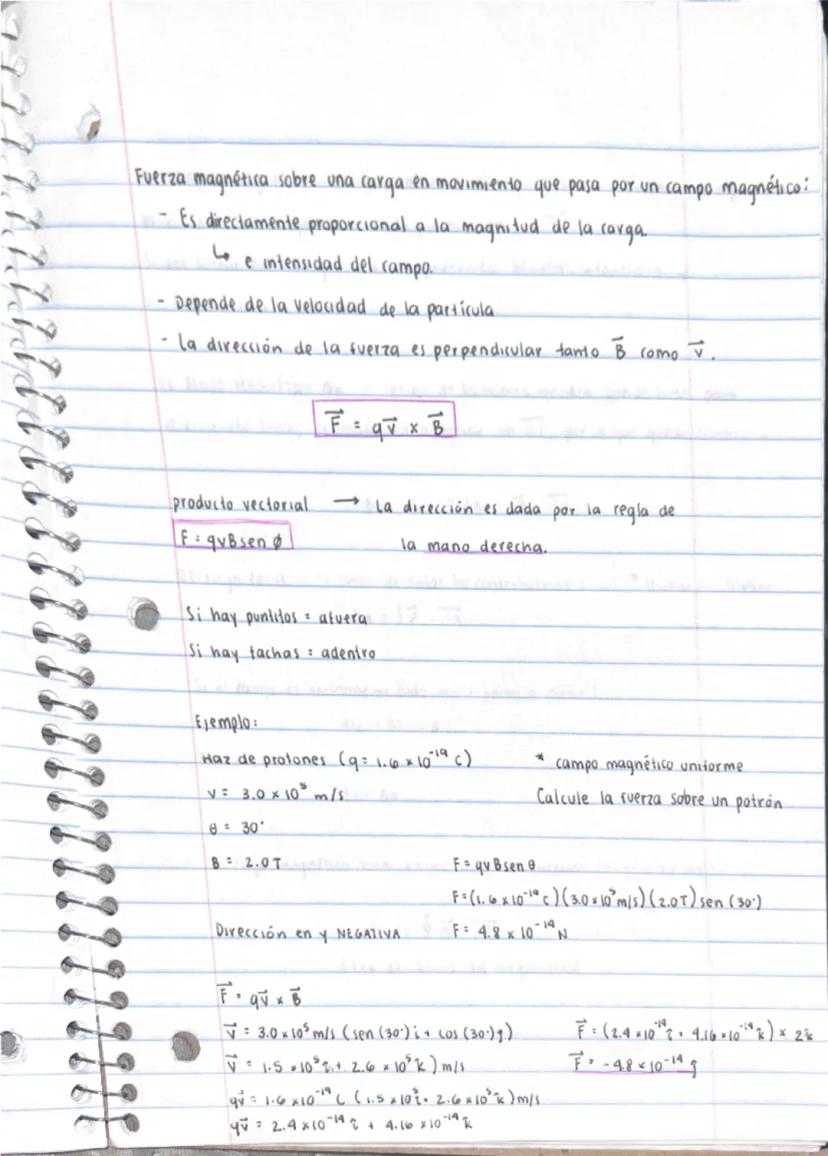 Fuerza magnética sobre una carga en movimiento que pasa por un campo magnético:
- Es directamente proporcional a la magnitud de la carga.
↳ e intensidad del campo.
- Depende de la velocidad de la partícula
- La dirección de la fuerza es perpendicular tanto B⃗ como v⃗.
F⃗ = qv⃗ x B⃗
producto vectorial → La dirección es dada por la regla de
F = qvBsen ϕ la mano derecha.
Si hay puntitos = afuera
Si hay tachas = adentro
Ejemplo:
Haz de protones (q = 1.6 x 10⁻¹⁹ C) * campo magnético uniforme
v = 3.0 x 10⁵ m/s Calcule la fuerza sobre un potrón
θ = 30°
B = 2.0T F = qvBsen θ
F = (1.6 x 10⁻¹⁹ C)(3.0 x 10⁵ m/s)(2.0T) sen (30°)
Dirección en y NEGATIVA F = 4.8 x 10⁻¹⁴ N
F⃗ = qv⃗ x B⃗
v⃗ = 3.0 x 10⁵ m/s (sen (30°) i + cos (30°) j) F⃗ = (2.4 x 10⁻¹⁴ î + 4.16 x 10⁻¹⁴ k̂) x 2k̂
v⃗ = 1.5 x 10⁵ î + 2.6 x 10⁵ k̂) m/s F⃗ = -4.8 x 10⁻¹⁴ ĵ
qv⃗ = 1.6 x 10⁻¹⁹ C (1.5 x 10⁵ î + 2.6 x 10⁵ k̂) m/s
qv⃗ = 2.4 x 10⁻¹⁴ î + 4.16 x 10⁻¹⁴ k̂